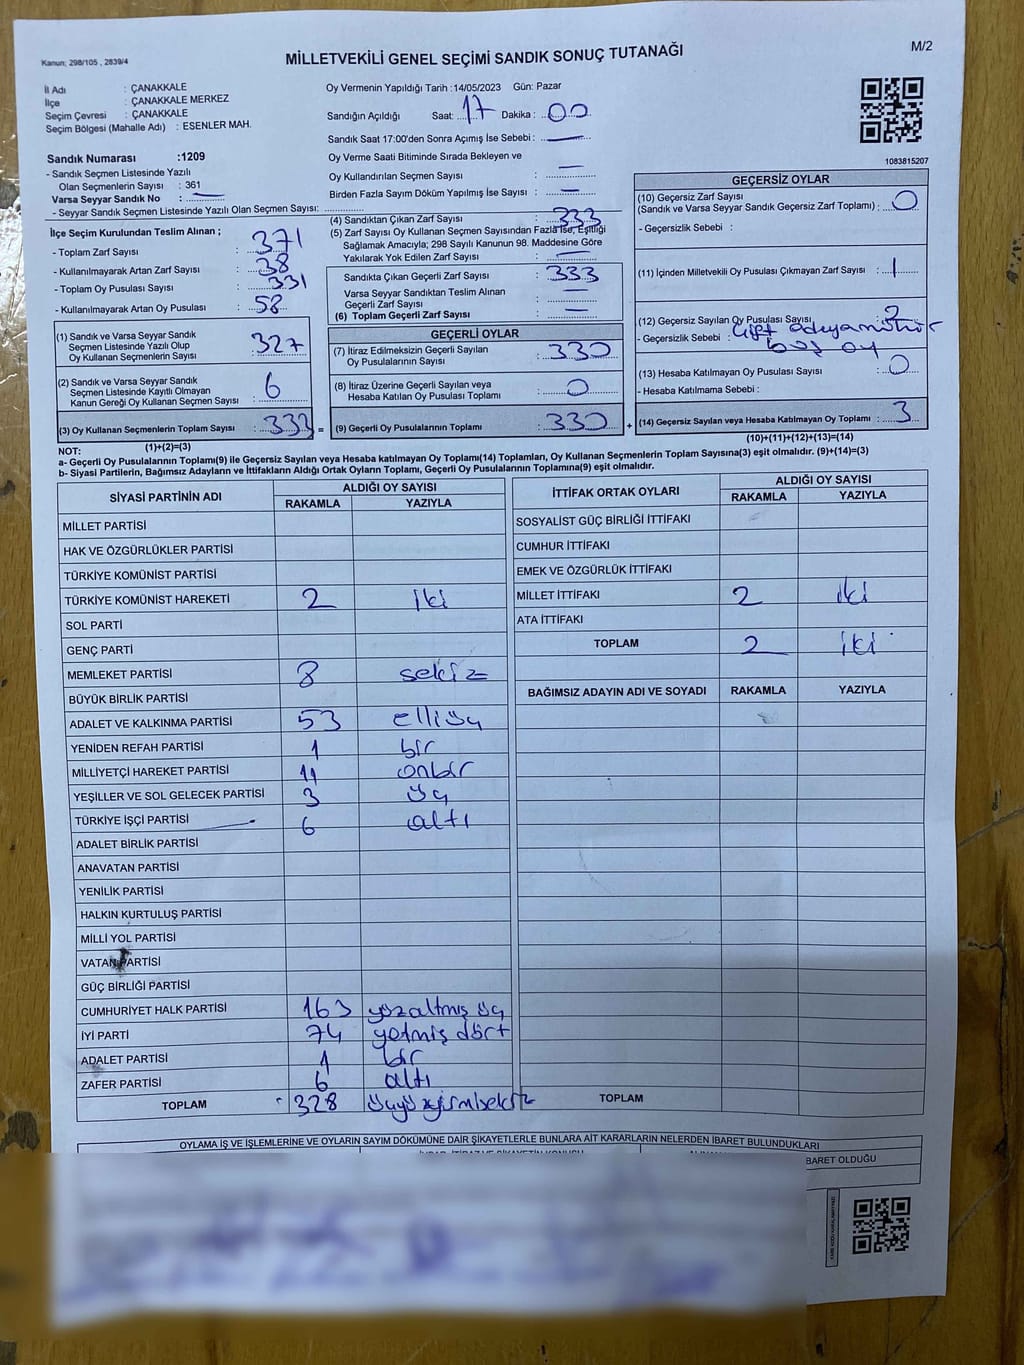 Kanun; 298/105 , 2839/4
MİLLETVEKİLİ GENEL SEÇİMİ SANDIK SONUÇ TUTANAĞI
M/2
İl Adı : ÇANAKKALE
İlçe : ÇANAKKALE MERKEZ
Seçim Çevresi : ÇANAKKALE
Seçim Bölgesi (Mahalle Adı) : ESENLER MAH.
Sandık Numarası :1209
- Sandık Seçmen Listesinde Yazılı
Olan Seçmenlerin Sayısı : 361
Varsa Seyyar Sandık No :
- Seyyar Sandık Seçmen Listesinde Yazılı Olan Seçmen Sayısı:
Oy Vermenin Yapıldığı Tarih :14/05/2023 Gün: Pazar
Sandığın Açıldığı Saat: 17 Dakika : 00
Sandık Saat 17:00'den Sonra Açımış İse Sebebi : —
Oy Verme Saati Bitiminde Sırada Bekleyen ve
Oy Kullandırılan Seçmen Sayısı : —
Birden Fazla Sayım Döküm Yapılmış İse Sayısı : —
1083815207
İlçe Seçim Kurulundan Teslim Alınan ;
- Toplam Zarf Sayısı : 371
- Kullanılmayarak Artan Zarf Sayısı : 38
- Toplam Oy Pusulası Sayısı : 331
- Kullanılmayarak Artan Oy Pusulası : 58
(1) Sandık ve Varsa Seyyar Sandık
Seçmen Listesinde Yazılı Olup
Oy Kullanan Seçmenlerin Sayısı : 327
(2) Sandık ve Varsa Seyyar Sandık
Seçmen Listesinde Kayıtlı Olmayan
Kanun Gereği Oy Kullanan Seçmen Sayısı : 6
(3) Oy Kullanan Seçmenlerin Toplam Sayısı : 333 =
(1)+(2)=(3)
(4) Sandıktan Çıkan Zarf Sayısı : 333
(5) Zarf Sayısı Oy Kullanan Seçmen Sayısından Fazla İse, Eşitliği
Sağlamak Amacıyla; 298 Sayılı Kanunun 98. Maddesine Göre
Yakılarak Yok Edilen Zarf Sayısı : —
Sandıkta Çıkan Geçerli Zarf Sayısı : 333
Varsa Seyyar Sandıktan Teslim Alınan
Geçerli Zarf Sayısı : —
(6) Toplam Geçerli Zarf Sayısı : —
GEÇERLİ OYLAR
(7) İtiraz Edilmeksizin Geçerli Sayılan
Oy Pusulalarının Sayısı : 330
(8) İtiraz Üzerine Geçerli Sayılan veya
Hesaba Katılan Oy Pusulası Toplamı : 0
(9) Geçerli Oy Pusulalarının Toplamı : 330 +
GEÇERSİZ OYLAR
(10) Geçersiz Zarf Sayısı
(Sandık ve Varsa Seyyar Sandık Geçersiz Zarf Toplamı) : 0
- Geçersizlik Sebebi :
(11) İçinden Milletvekili Oy Pusulası Çıkmayan Zarf Sayısı : 1
(12) Geçersiz Sayılan Oy Pusulası Sayısı : 2
- Geçersizlik Sebebi : Çift adaya mühür
boş oy
(13) Hesaba Katılmayan Oy Pusulası Sayısı : 0
- Hesaba Katılmama Sebebi :
(14) Geçersiz Sayılan veya Hesaba Katılmayan Oy Toplamı : 3
(10)+(11)+(12)+(13)=(14)
NOT:
a- Geçerli Oy Pusulalarının Toplamı(9) ile Geçersiz Sayılan veya Hesaba katılmayan Oy Toplamı(14) Toplamları, Oy Kullanan Seçmenlerin Toplam Sayısına(3) eşit olmalıdır. (9)+(14)=(3)
b- Siyasi Partilerin, Bağımsız Adayların ve İttifakların Aldığı Ortak Oyların Toplamı, Geçerli Oy Pusulalarının Toplamına(9) eşit olmalıdır.
SİYASİ PARTİNİN ADI ALDIĞI OY SAYISI
RAKAMLA YAZIYLA
MİLLET PARTİSİ
HAK VE ÖZGÜRLÜKLER PARTİSİ
TÜRKİYE KOMÜNİST PARTİSİ
TÜRKİYE KOMÜNİST HAREKETİ 2 iki
SOL PARTİ
GENÇ PARTİ
MEMLEKET PARTİSİ 8 sekiz
BÜYÜK BİRLİK PARTİSİ
ADALET VE KALKINMA PARTİSİ 53 elliüç
YENİDEN REFAH PARTİSİ 1 bir
MİLLİYETÇİ HAREKET PARTİSİ 11 onbir
YEŞİLLER VE SOL GELECEK PARTİSİ 3 üç
TÜRKİYE İŞÇİ PARTİSİ 6 altı
ADALET BİRLİK PARTİSİ
ANAVATAN PARTİSİ
YENİLİK PARTİSİ
HALKIN KURTULUŞ PARTİSİ
MİLLİ YOL PARTİSİ
VATAN PARTİSİ
GÜÇ BİRLİĞİ PARTİSİ
CUMHURİYET HALK PARTİSİ 163 yüzaltmış üç
İYİ PARTİ 74 yetmiş dört
ADALET PARTİSİ 1 bir
ZAFER PARTİSİ 6 altı
TOPLAM 328 üçyüzyirmisekiz
İTTİFAK ORTAK OYLARI ALDIĞI OY SAYISI
RAKAMLA YAZIYLA
SOSYALİST GÜÇ BİRLİĞİ İTTİFAKI
CUMHUR İTTİFAKI
EMEK VE ÖZGÜRLÜK İTTİFAKI
MİLLET İTTİFAKI 2 iki
ATA İTTİFAKI
TOPLAM 2 iki
BAĞIMSIZ ADAYIN ADI VE SOYADI RAKAMLA YAZIYLA
TOPLAM
OYLAMA İŞ VE İŞLEMLERİNE VE OYLARIN SAYIM DÖKÜMÜNE DAİR ŞİKAYETLERLE BUNLARA AİT KARARLARIN NELERDEN İBARET BULUNDUKLARI
BARET OLDUĞU